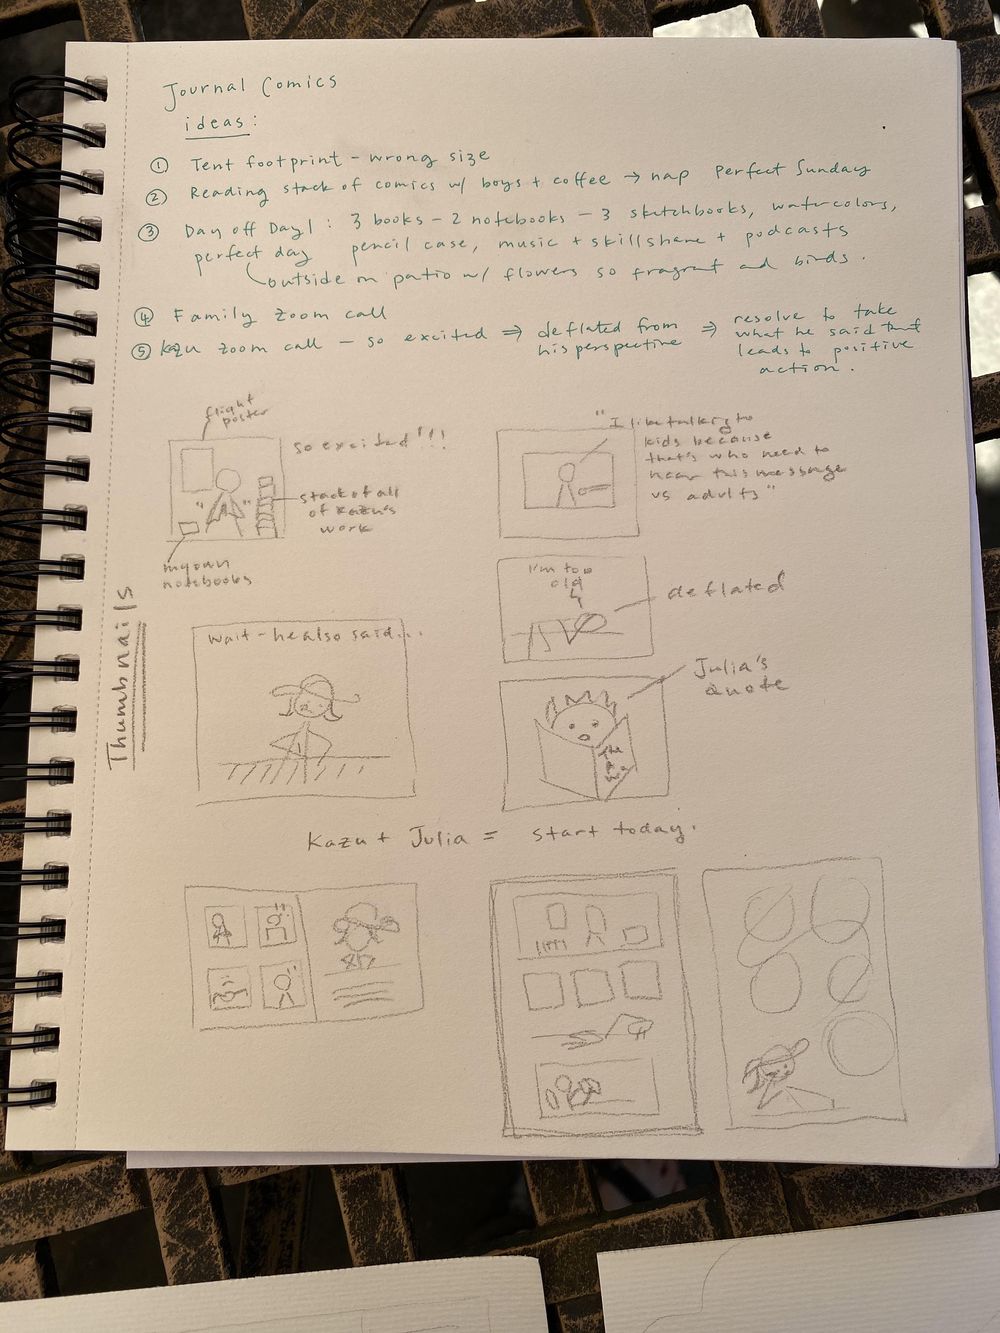 Journal Comics
ideas:
① Tent footprint - wrong size
② Reading stack of comics w/ boys + coffee → nap perfect Sunday
③ Day off Day 1: 3 books - 2 notebooks - 3 sketchbooks, watercolors,
perfect day pencil case, music + skillshare + podcasts
outside on patio w/ flowers so fragrant and birds.
④ Family zoom call
⑤ Kazu zoom call - so excited ⇒ deflated from ⇒ resolve to take
his perspective what he said that
leads to positive
action.
flight
poster
so excited!!!
stack of all
of Kazu's
work
my own
notebooks
"I like talking to
kids because
that's who need to
hear this message
vs adults"
I'm too
old
deflated
Thumbnails
wait - he also said...
Julia's
quote
Kazu + Julia = start today.